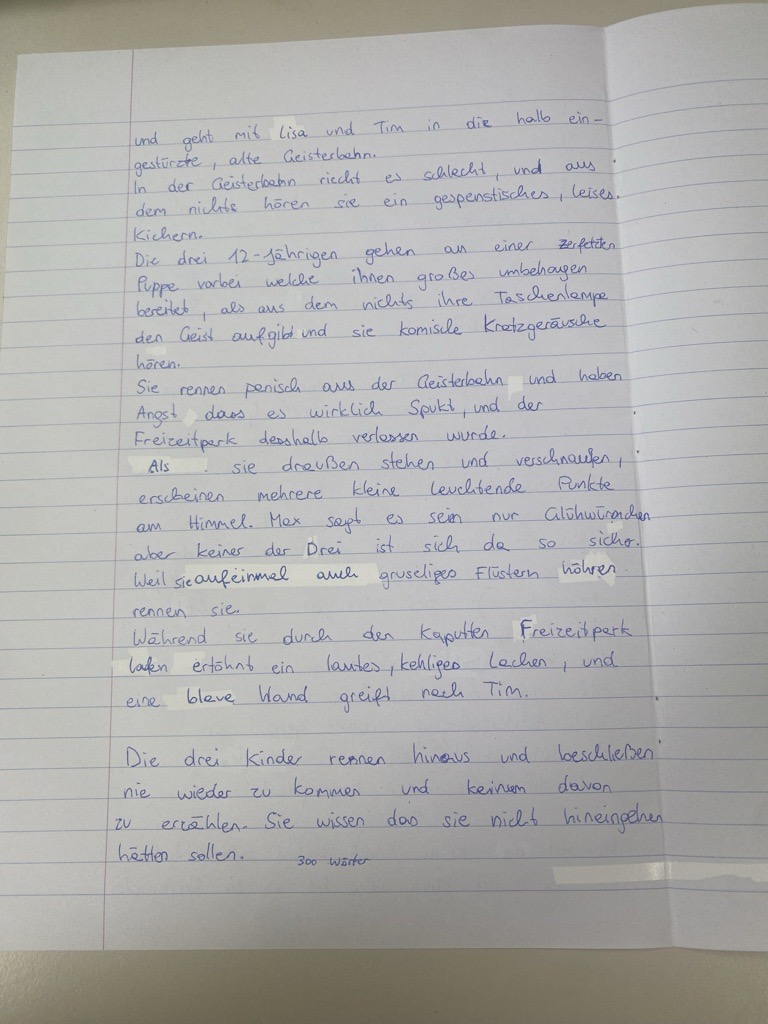 und geht mit Lisa und Tim in die halb ein-
gestürzte, alte Geisterbahn.
In der Geisterbahn riecht es schlecht, und aus
dem nichts hören sie ein gespenstisches, leises
Kichern.
Die drei 12-Jährigen gehen an einer zerfetzten
Puppe vorbei welche ihnen großes umbehagen
bereitet, als aus dem nichts ihre Taschenlampe
den Geist aufgibt und sie komische Kratzgeräusche
hören.
Sie rennen panisch aus der Geisterbahn und haben
Angst dass es wirklich Spukt, und der
Freizeitpark desshalb verlassen wurde.
Als sie draußen stehen und verschnaufen,
erscheinen mehrere kleine leuchtende Punkte
am Himmel. Max sagt es sein nur Glühwürmchen
aber keiner der Drei ist sich da so sicher.
Weil sie aufeinmal auch gruseliges Flüstern höhren
rennen sie.
Während sie durch den Kaputten Freizeitpark
laufen ertöhnt ein lautes, kehliges Lachen, und
eine blaue Hand greift nach Tim.
Die drei Kinder rennen hinaus und beschließen
nie wieder zu kommen und keinem davon
zu erzählen. Sie wissen das sie nicht hineingehen
hätten sollen. 300 Wörter